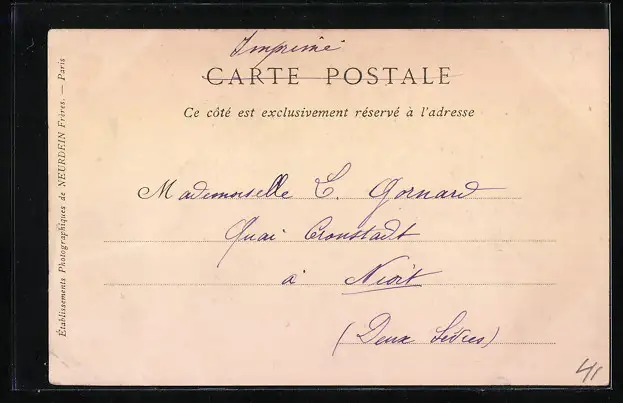 Imprimé
CARTE POSTALE
Ce côté est exclusivement réservé à l'adresse
Mademoiselle C. Gornard
Quai Cronstadt
à Niort
(Deux Sèvres)
Établissements Photographiques de NEURDEIN Frères. — Paris